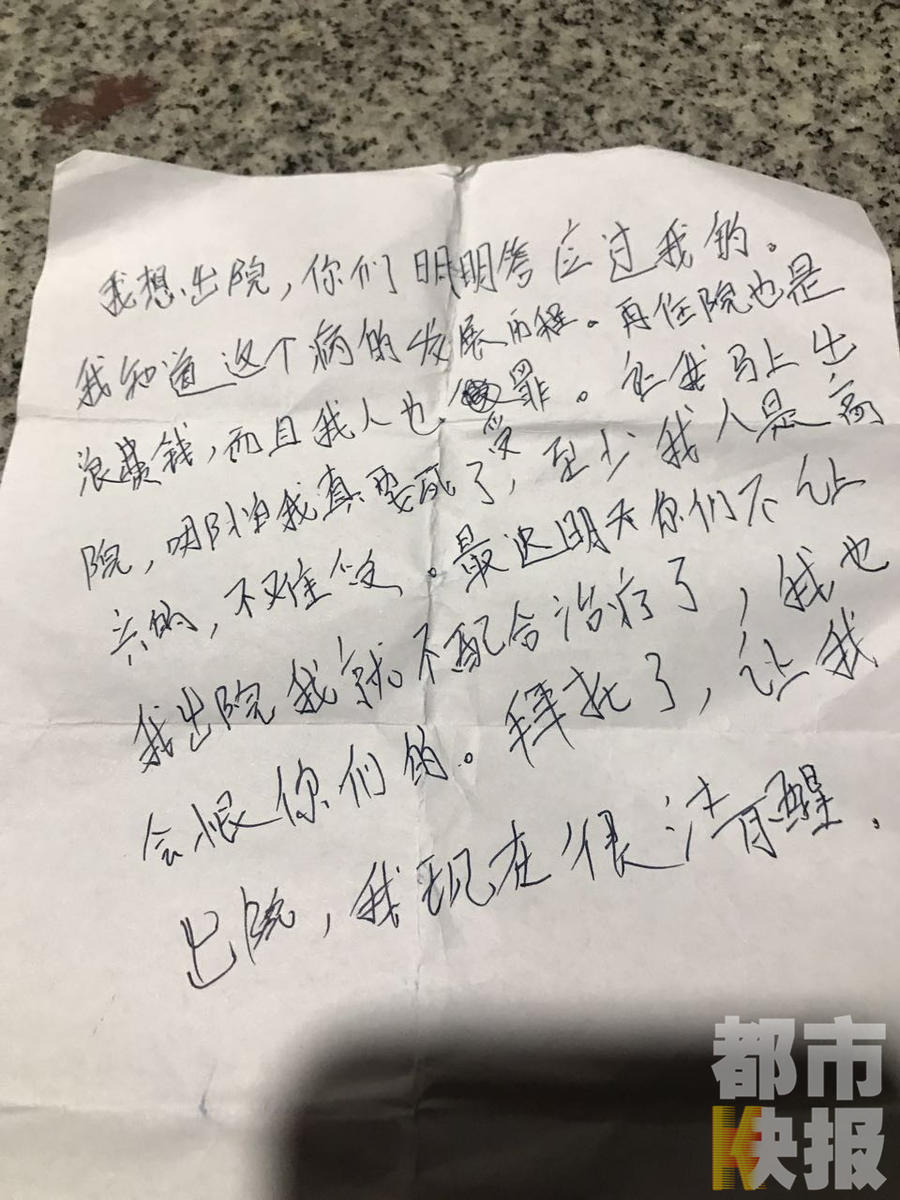 我想出院，你们明明答应过我的。
我知道这个病的发展历程。再住院也是
浪费钱，而且我人也受罪。让我马上出
院，哪怕我真要死了，至少我人是高
兴的，不难受。最迟明天你们不让
我出院我就不配合治疗了，我也
会恨你们的。拜托了，让我
出院，我现在很清醒．
都市
快报